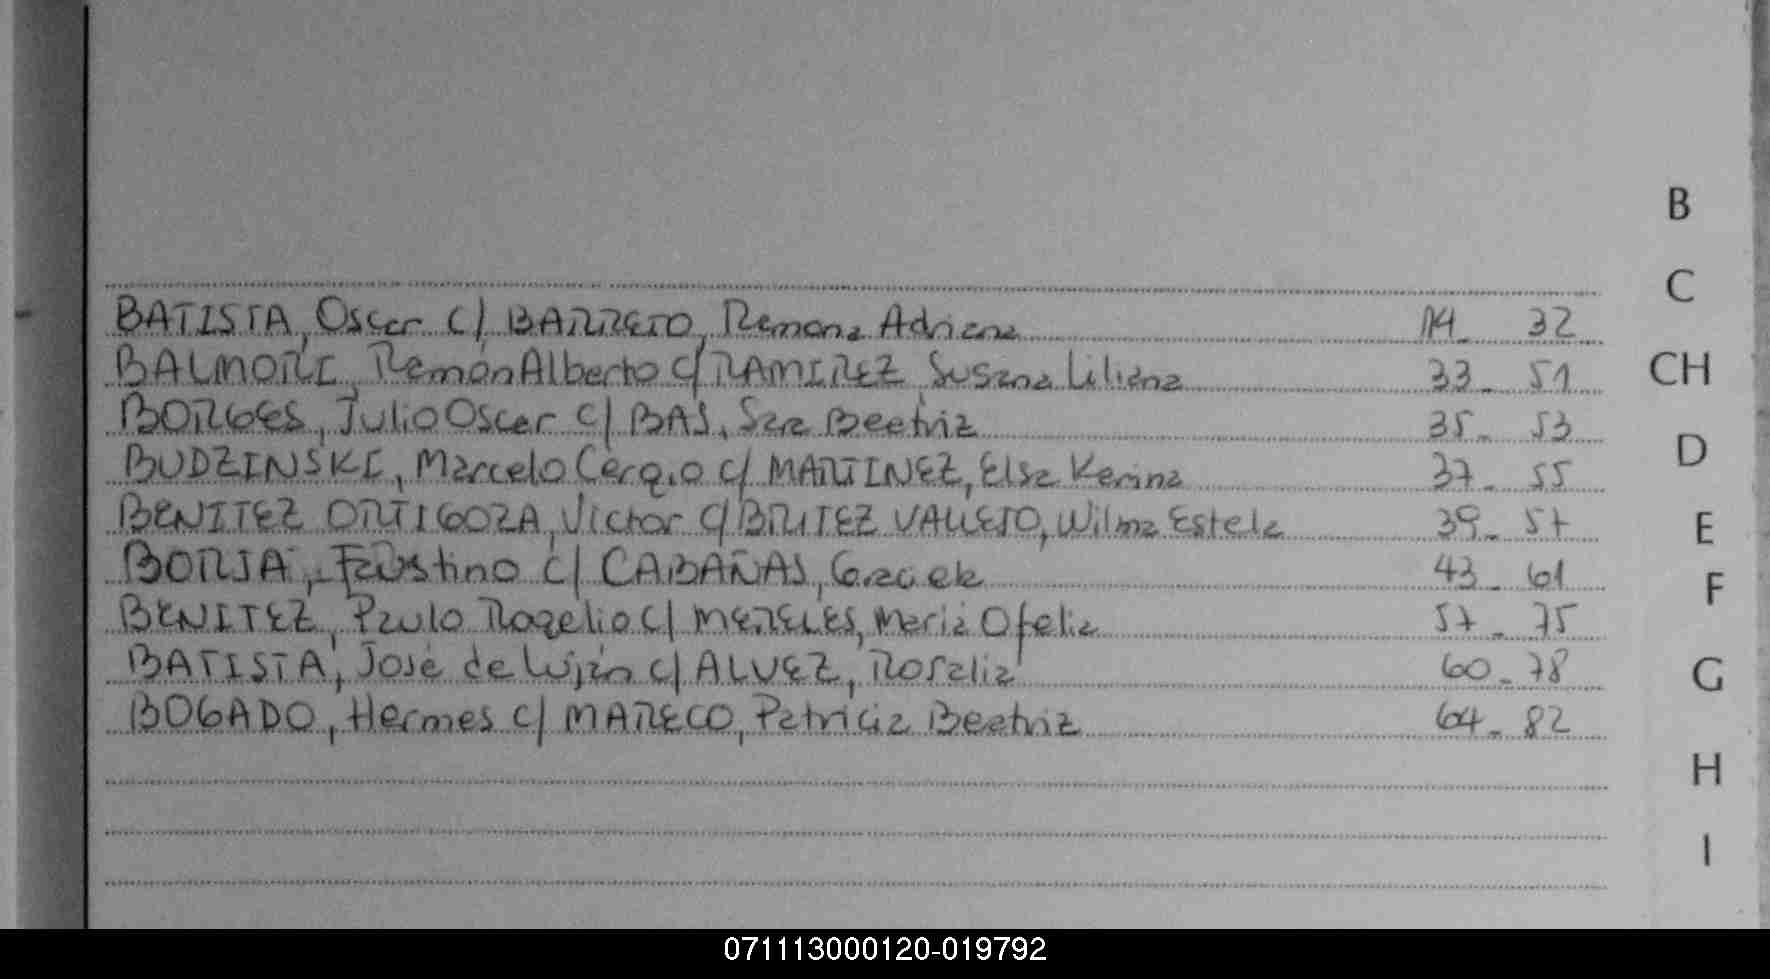 B
C
BATISTA, Oscar c/ BARRETO, Ramona Adriana 14_ 32
CH
BALMORI, Ramón Alberto c/ RAMIREZ, Susana Liliana 33_ 51
BORGES, Julio Oscar c/ BAS, Sara Beatriz 35_ 53
D
BUDZINSKI, Marcelo Cergio c/ MARTINEZ, Elsa Karina 37_ 55
BENITEZ ORTIGOZA, Victor c/ BRITEZ VALLEJO, Wilma Estela 39_ 57
E
BORJA, Faustino c/ CABAÑAS, Graciela 43_ 61
F
BENITEZ, Paulo Rogelio c/ MERELES, María Ofelia 57_ 75
BATISTA, José de Luján c/ ALVEZ, Rosalia 60_ 78
G
BOGADO, Hermes c/ MARECO, Patricia Beatriz 64_ 82
H
I
071113000120-019792